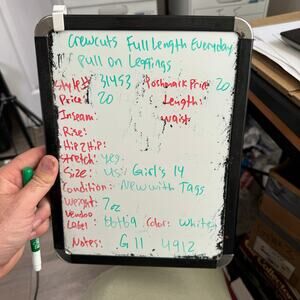 Crewcuts Full Length Everyday
Pull On Leggings
Style#: 31453 Poshmark Price: 20
Price: 20 Length:
Inseam: Waist:
Rise:
Hip2Hip:
Stretch: yes
Size: US: Girl's 14
Condition: New with Tags
Weight: 7oz
Vendoo
Label: 66469 Color: White
Notes: G11. 4912